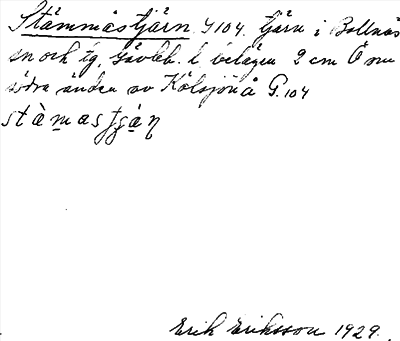 Stämmåstjärn G104. Tjärn i Bollnäs
sn och tg, Gävleb. l. belägen 2 cm Ö om
södra änden av Kölsjön å G.104
stàmastjạ̈n
Erik Eriksson 1929.